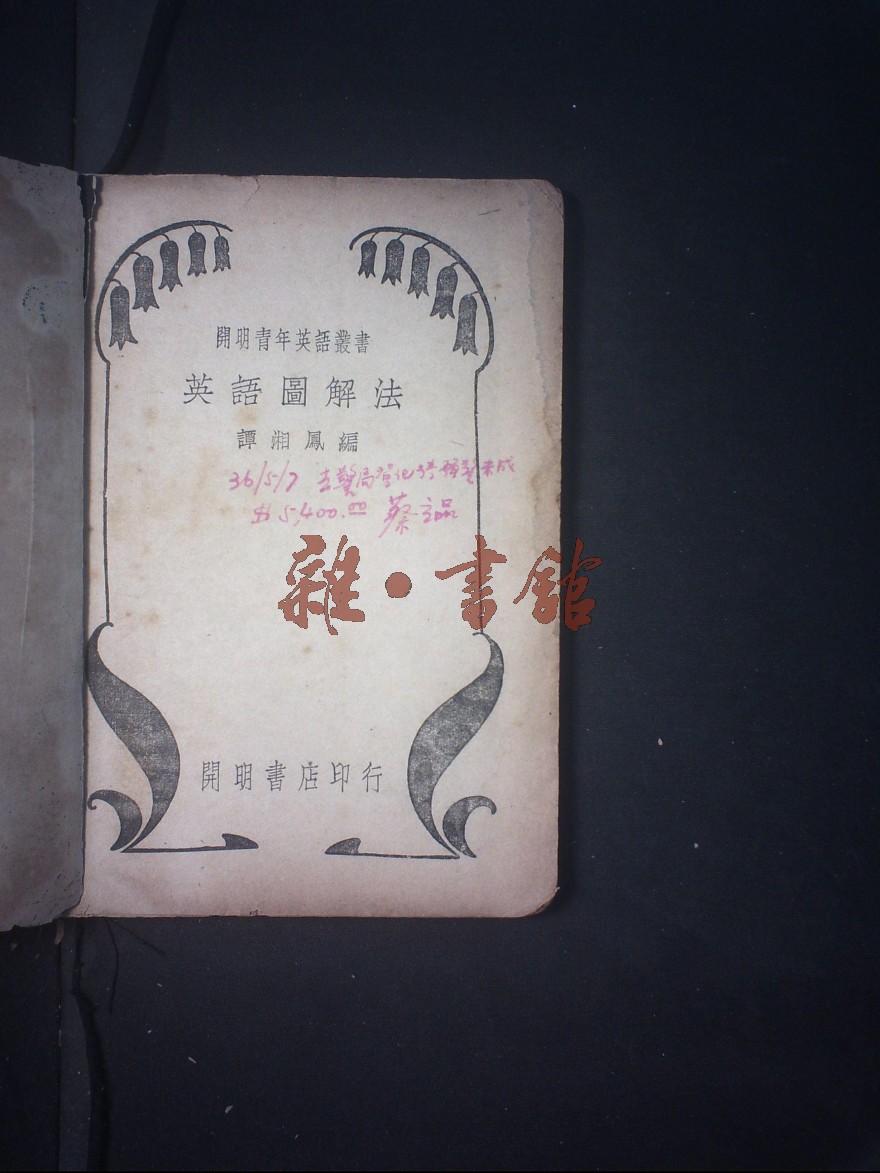 開明青年英語叢書
英語圖解法
譚湘鳳編
36/5/7 去醫局登記
$5,400.00 蔡
雜·書館
開明書店印行